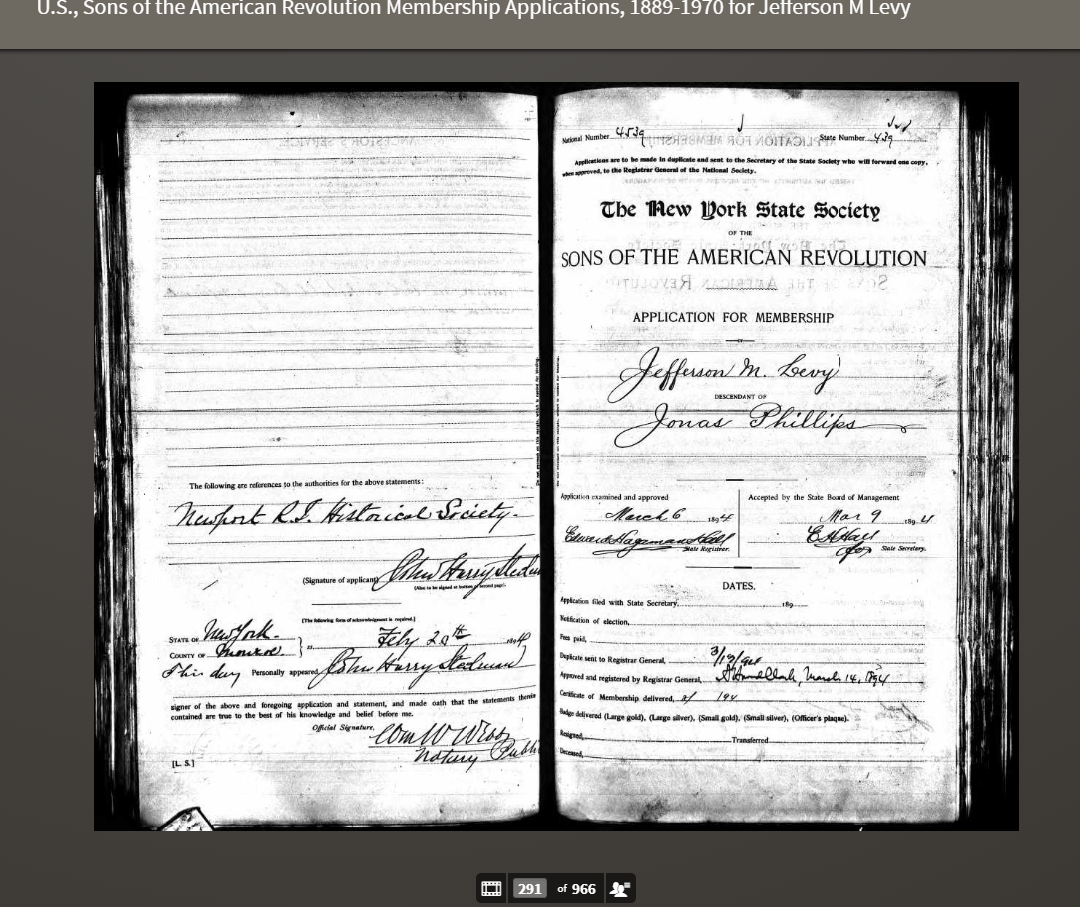 U.S., Sons of the American Revolution Membership Applications, 1889-1970 for Jefferson M Levy
The following are references to the authorities for the above statements:
Newport R.I. Historical Society.
(Signature of applicant) John Harry Stedman
(Also to be signed at bottom of second page).
[The following form of acknowledgment is required.]
STATE OF New York.
COUNTY OF Monroe } ss. Feby 20th 1894
This day Personally appeared John Harry Stedman
signer of the above and foregoing application and statement, and made oath that the statements therein
contained are true to the best of his knowledge and belief before me.
Official Signature, Wm W Webb
Notary Public
[L. S.]
National Number 4539 State Number 439
Applications are to be made in duplicate and sent to the Secretary of the State Society who will forward one copy,
when approved, to the Registrar General of the National Society.
The New York State Society
OF THE
SONS OF THE AMERICAN REVOLUTION
APPLICATION FOR MEMBERSHIP
OF
Jefferson M. Levy
DESCENDANT OF
Jonas Phillips
Application examined and approved
March 6 1894
Edward Hagaman Hall
State Registrar.
Accepted by the State Board of Management
Mar 9 1894
E H Hall
State Secretary.
DATES.
Application filed with State Secretary, 189
Notification of election,
Fees paid,
Duplicate sent to Registrar General, 3/13/94
Approved and registered by Registrar General, March 14, 1894
Certificate of Membership delivered,
Badge delivered (Large gold), (Large silver), (Small gold), (Small silver), (Officer's plaque).
Resigned, Transferred
Deceased,
291 of 966